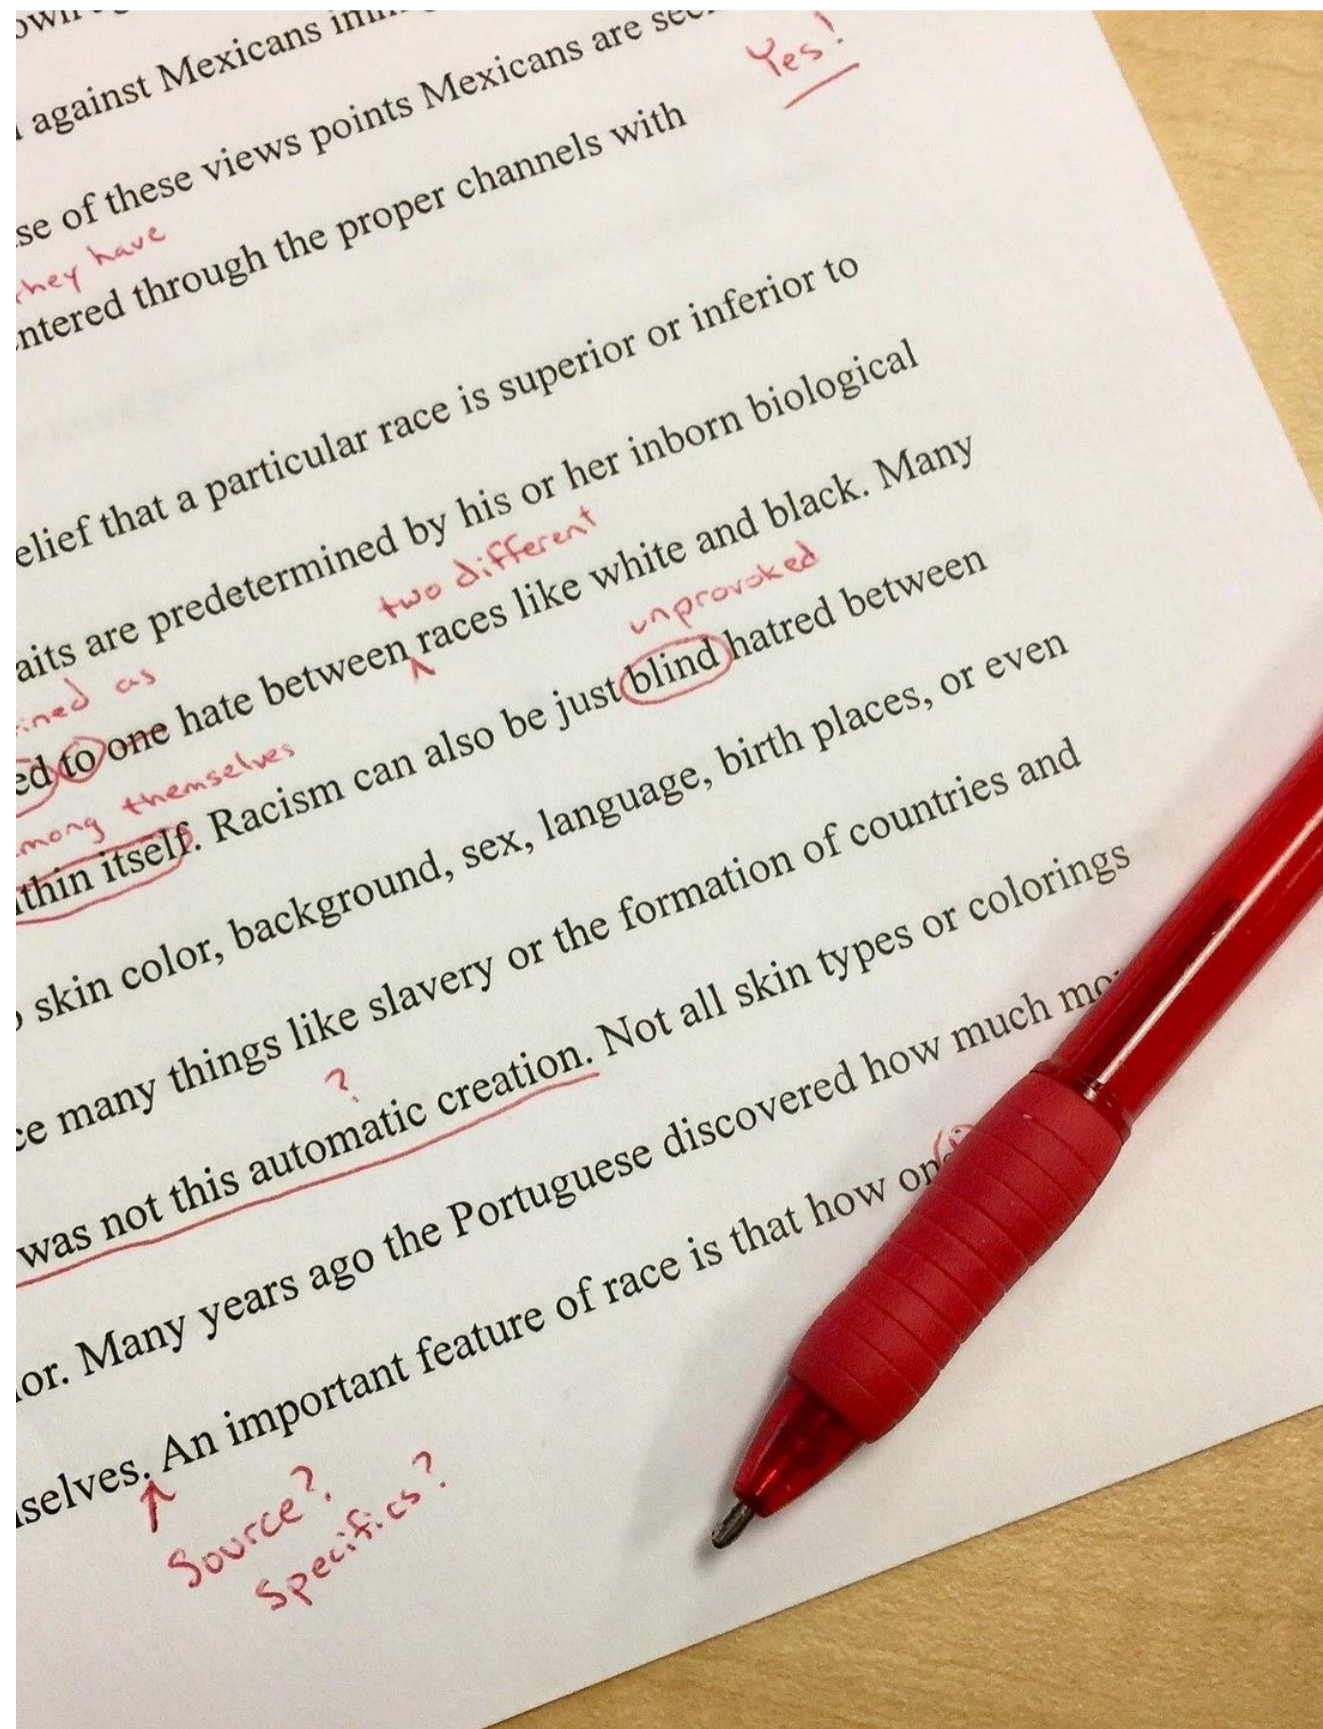 against Mexicans
Yes!
se of these views points Mexicans are
they have
ntered through the proper channels with
elief that a particular race is superior or inferior to
aits are predetermined by his or her inborn biological
two different
hate between races like white and black. Many
ined as
unprovoked
ed to one
Racism can also be just blind hatred between
among themselves
thin itself.
skin color, background, sex, language, birth places, or even
ce many things like slavery or the formation of countries and
?
was not this automatic creation. Not all skin types or colorings
or. Many years ago the Portuguese discovered how much
selves. An important feature of race is that how
Source?
Specifics?